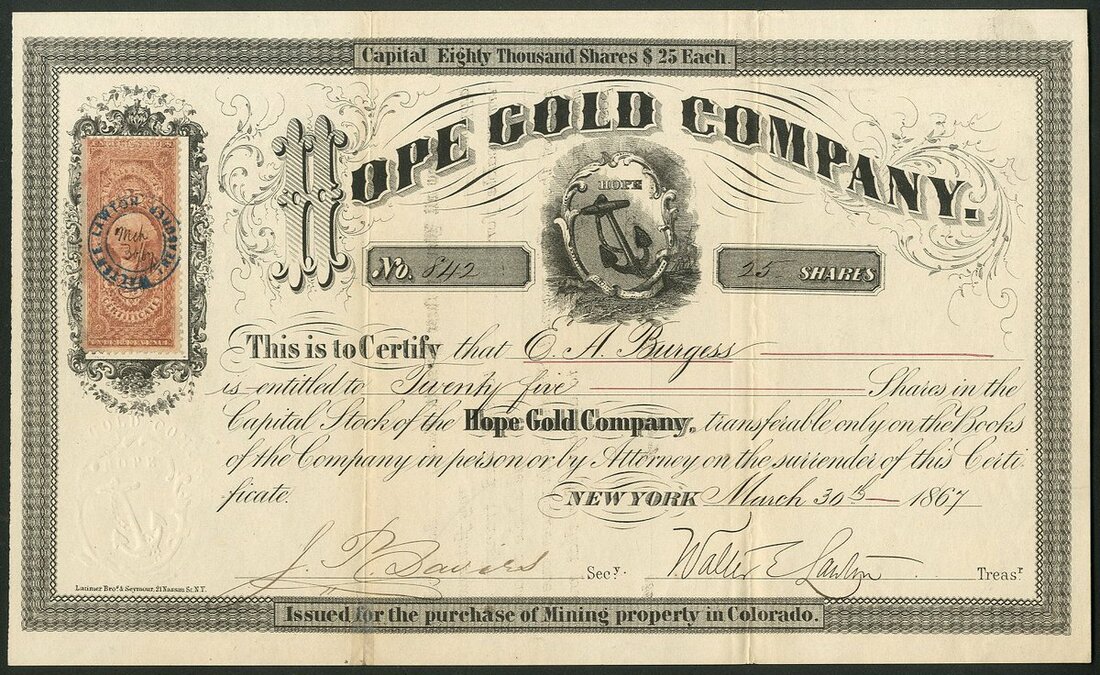 Capital Eighty Thousand Shares $ 25 Each.
HOPE GOLD COMPANY.
HOPE
No. 842
25 SHARES
WALTER E LAWTON TREASURER
Mch
30/67
CERTIFICATE
This is to Certify that E. A. Burgess
is entitled to Twenty five Shares in the
Capital Stock of the Hope Gold Company, transferable only on the Books
of the Company in person or by Attorney on the surrender of this Certi
ficate.
NEW YORK March 30th 1867
HOPE GOLD COM
J. P. Davies Secy. Walter E Lawton Treasr
Latimer Bros. & Seymour, 21 Nassau St. N.Y.
Issued for the purchase of Mining property in Colorado.